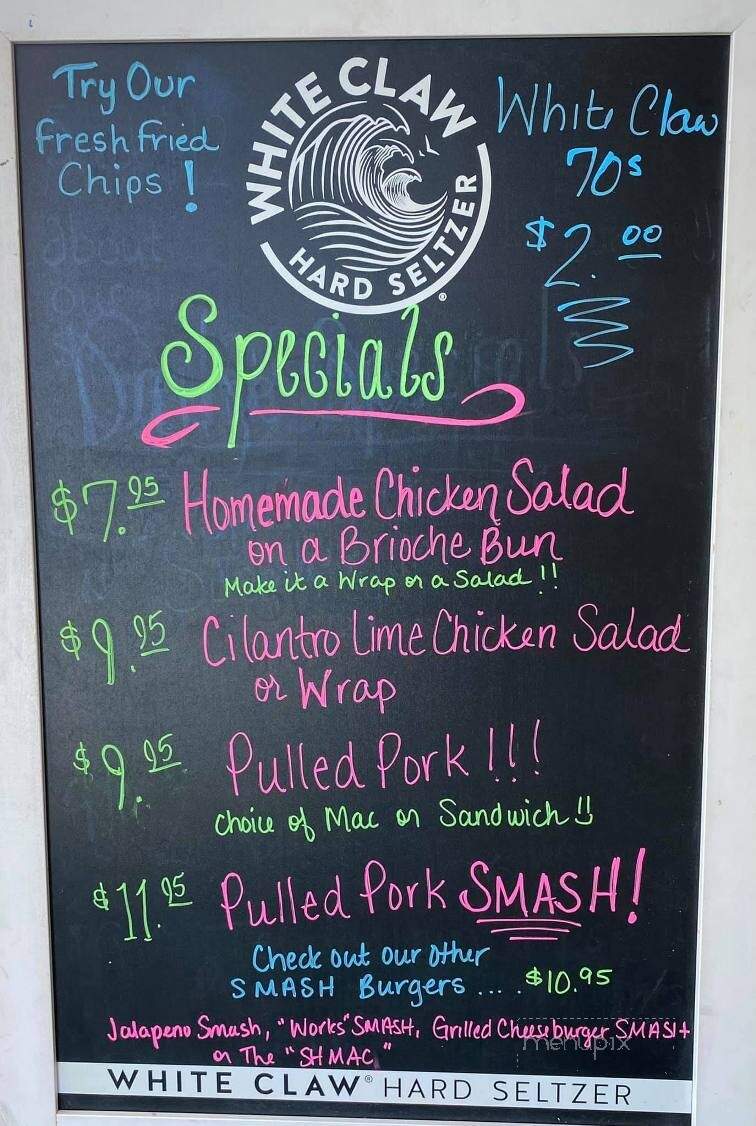 Try Our
Fresh Fried
Chips !
WHITE CLAW
HARD SELTZER
White Claw
70s
$2.00
Specials
$7.95 Homemade Chicken Salad
on a Brioche Bun
Make it a Wrap or a Salad !!
$9.95 Cilantro Lime Chicken Salad
or Wrap
$9.95 Pulled Pork !!!
Choice of Mac or Sandwich !!
$11.95 Pulled Pork SMASH!
Check out our other
SMASH Burgers .... $10.95
Jalapeno Smash, "Works" SMASH, Grilled Cheeseburger SMASH
or The "SHMAC"
menupix
WHITE CLAW® HARD SELTZER